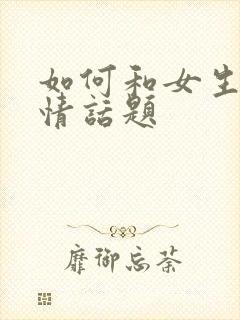 如何和女生
情話題
靡御忘荼